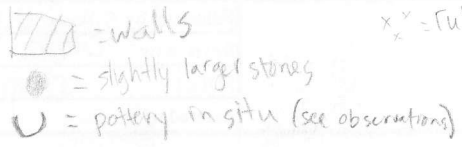 = walls
= slightly larger stones
= pottery in situ (see observations)